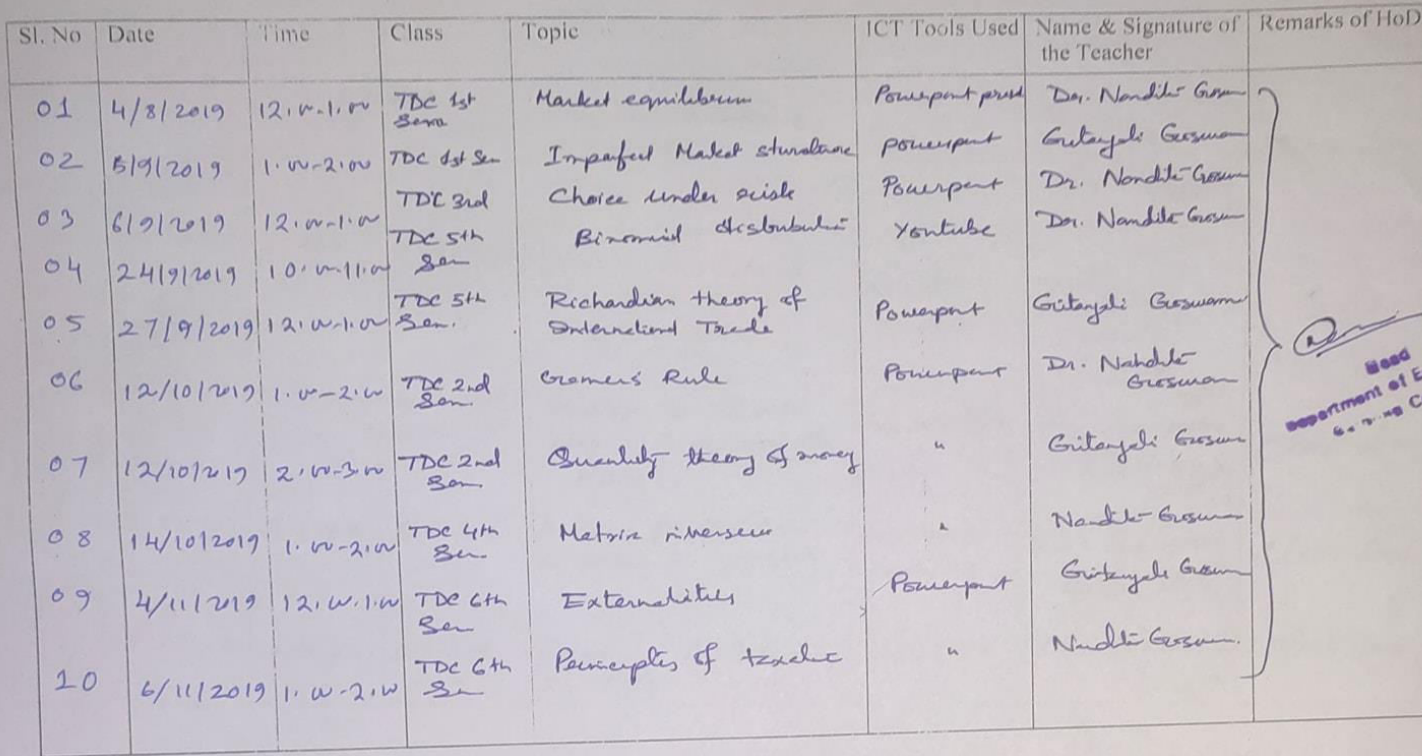 Sl. No Date Time Class Topic ICT Tools Used Name & Signature of the Teacher Remarks of HoD
01 4/8/2019 12.00-1.00 TDC 1st Sem Market equilibrium Powerpoint Dr. Nandita Goswami
02 5/9/2019 1.00-2.00 TDC 1st Sem Imperfect Market structure powerpoint Gitanjali Goswami
03 6/9/2019 12.00-1.00 TDC 3rd Choice under risk Powerpoint Dr. Nandita Goswami
04 24/9/2019 10.00-11.00 TDC 5th Sem Binomial distribution Youtube Dr. Nandita Goswami
05 27/9/2019 12.00-1.00 TDC 5th Sem. Richardian theory of International Trade Powerpoint Gitanjali Goswami
06 12/10/2019 1.00-2.00 TDC 2nd Sem. Cramers Rule Powerpoint Dr. Nandita Goswami
07 12/10/2019 2.00-3.00 TDC 2nd Sem Quantity theory of money " Gitanjali Goswami
08 14/10/2019 1.00-2.00 TDC 4th Sem. Matrix " Nandita Goswami
09 4/11/2019 12.00.1.00 TDC 6th Sem Externalities Powerpoint Gitanjali Goswami
10 6/11/2019 1.00-2.00 TDC 6th Sem Principles of " Nandita Goswami.
Head
Department of E